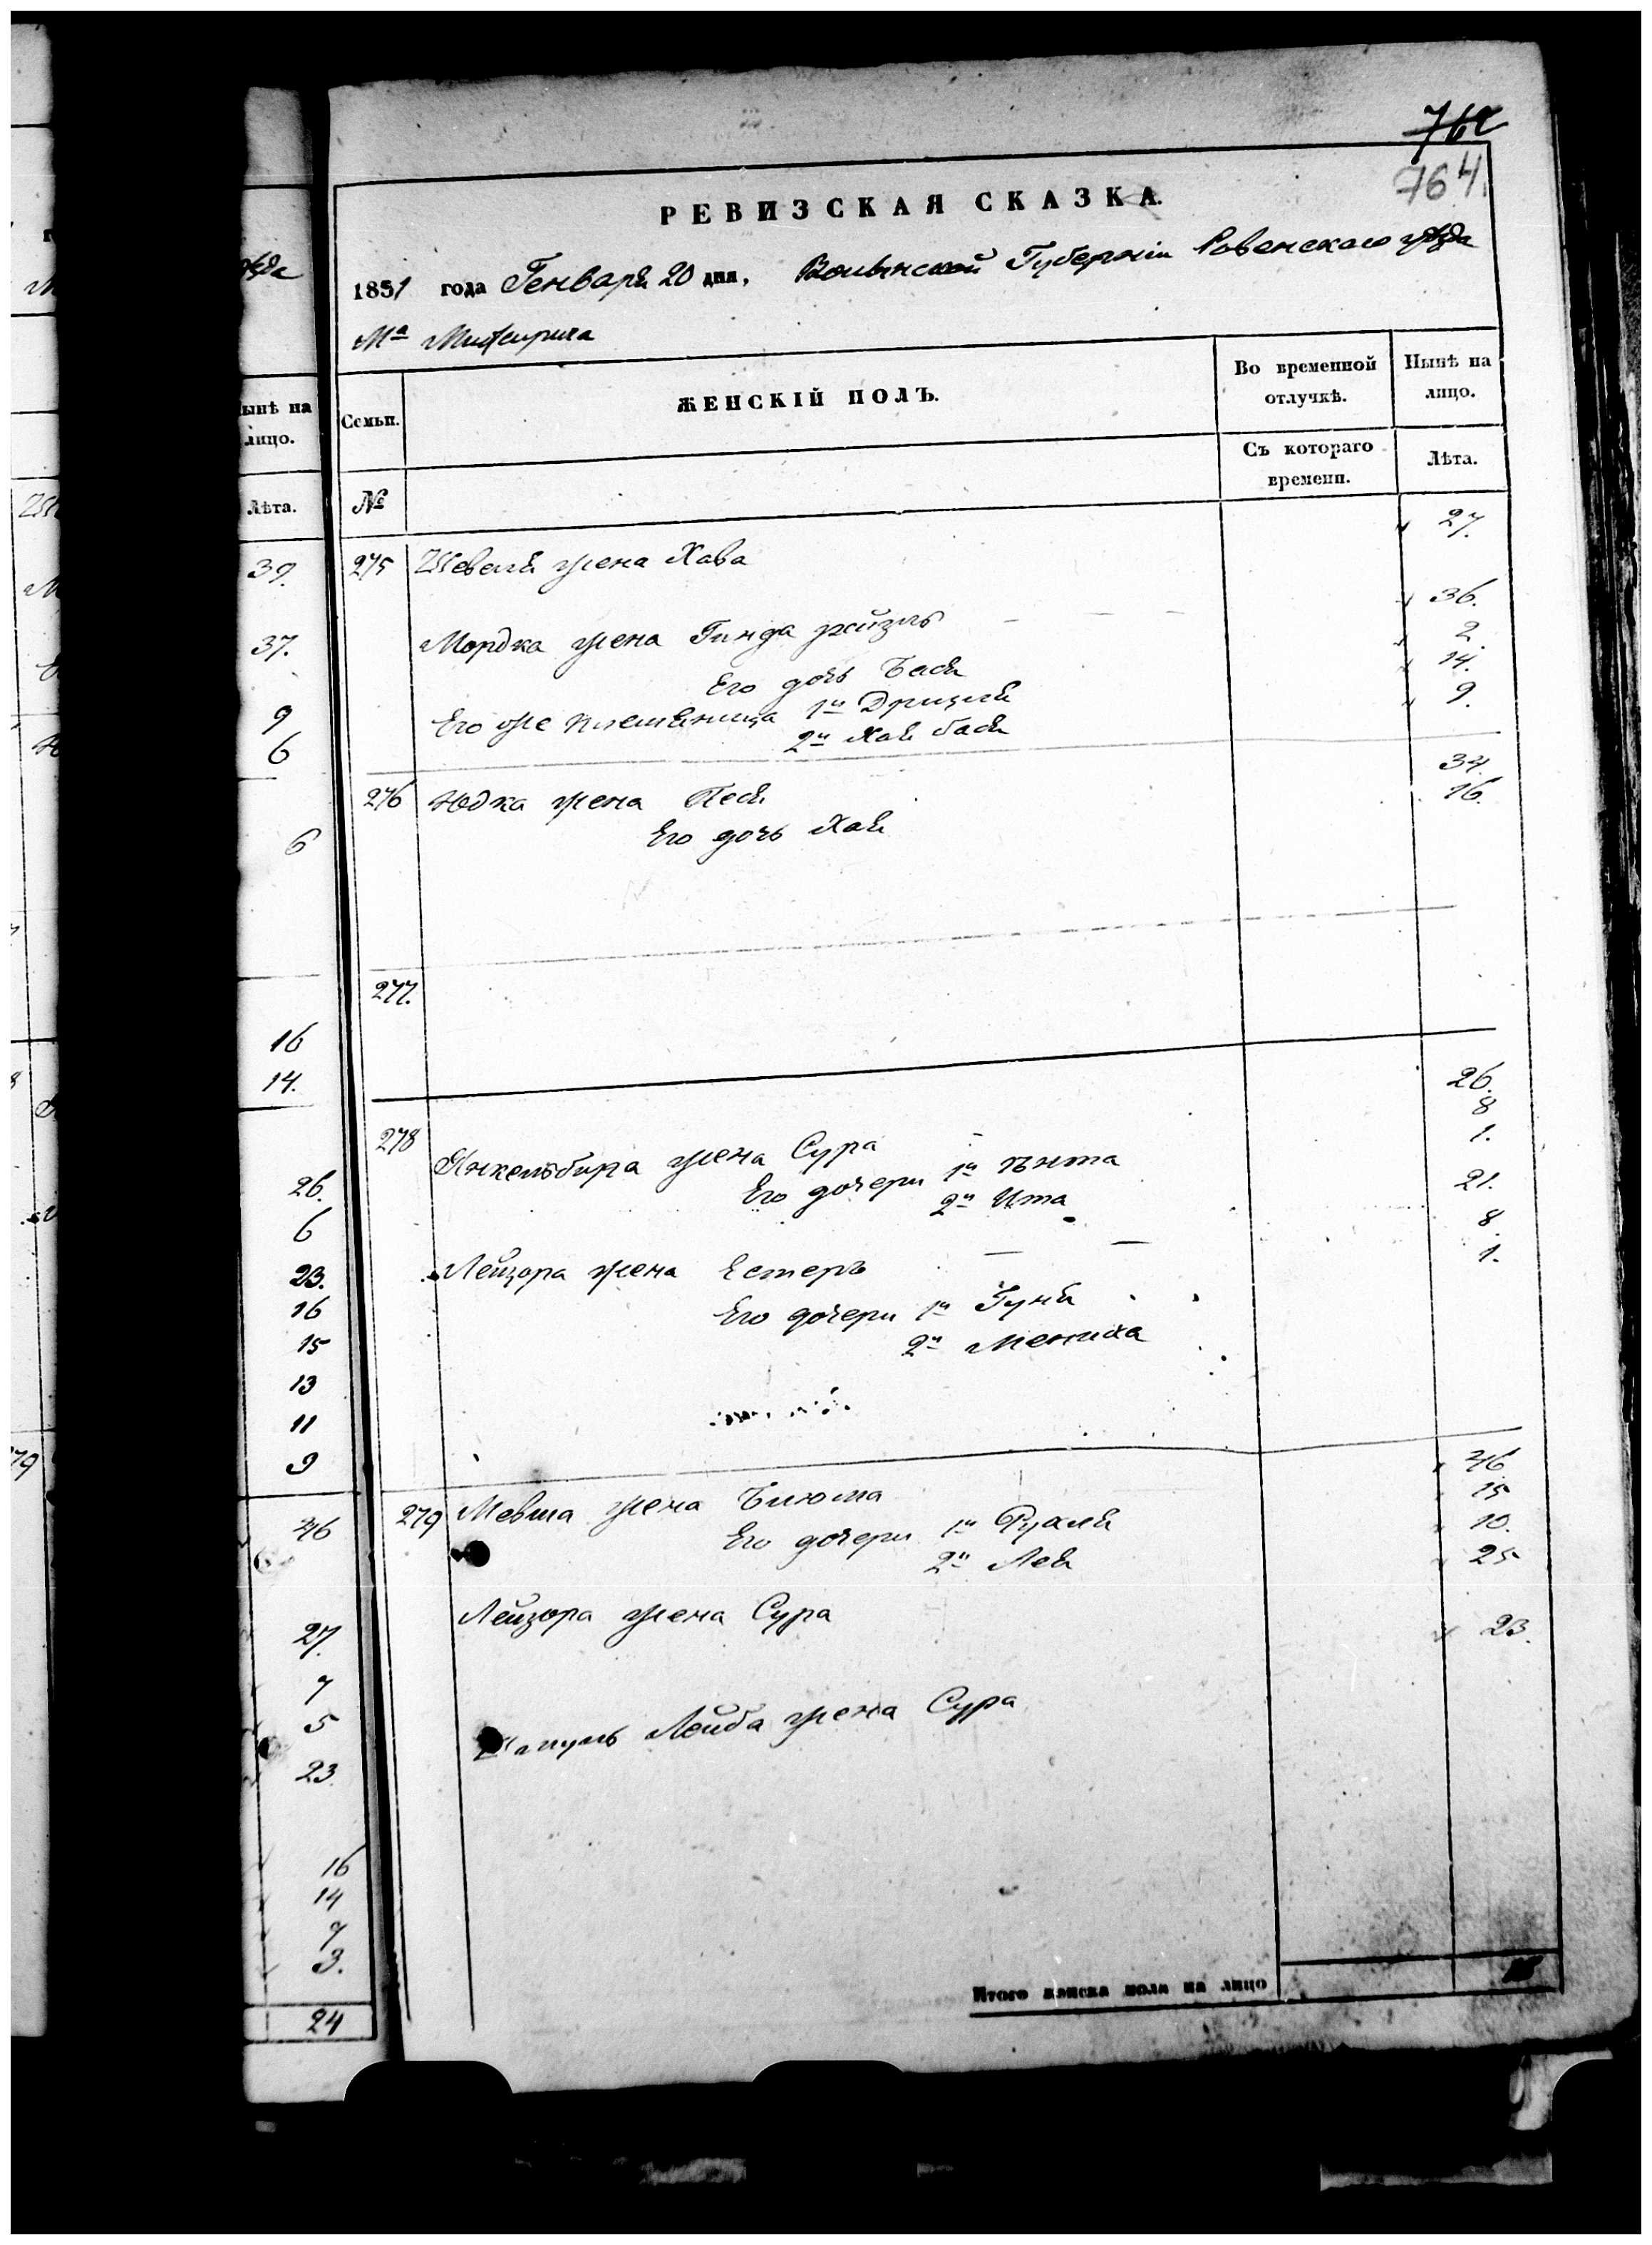 764
РЕВИЗСКАЯ СКАЗКА.
1851 года Генваря 20 дня, Волынской Губерніи Ровенского уѣзда
Мᵃ Межирича
Семьи. ЖЕНСКІЙ ПОЛЪ. Во временной отлучкѣ. Нынѣ на лицо.
№ Съ котораго времени. Лѣта.
275 жена Хава " 27.
Мордка жена Гинда рейзль — — " 36.
Его дочь Бася " 2.
Его же племяница 1я " 14.
2я Хая бася " 9.
276 Юдка жена Песя 34.
Его дочь Хая 16.
277.
278 Янкельбира жена Сура 26.
Его дочери 1я 8
2я Ита 1.
Лейзора жена Естеръ — — 21.
Его дочери 1я Гуня 8.
2я Мениха 1.
279 Мевша жена Блюма " 46
Его дочери 1я Рухля " 15
2я Лея " 10.
Лейзора жена Сура " 25
Шмуль Лейба жена Сура " 23.
Итого женска пола на лицо
ынѣ на
лицо.
Лѣта.
39.
37.
9
6
6
16
14.
26.
6
23.
16
15
13
11
9
46
27.
7
5
23.
16
14
7
3.
24